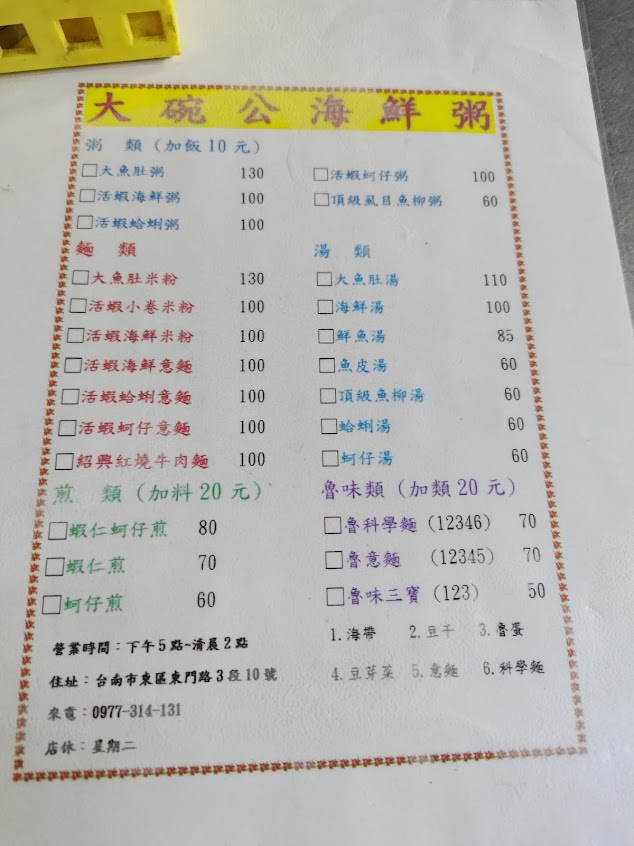 大碗公海鮮粥
粥 類 (加飯10元)
□大魚肚粥 130
□活蝦海鮮粥 100
□活蝦蛤蜊粥 100
□活蝦蚵仔粥 100
□頂級虱目魚柳粥 60
麵 類
□大魚肚米粉 130
□活蝦小卷米粉 100
□活蝦海鮮米粉 100
□活蝦海鮮意麵 100
□活蝦蛤蜊意麵 100
□活蝦蚵仔意麵 100
□紹興紅燒牛肉麵 100
湯 類
□大魚肚湯 110
□海鮮湯 100
□鮮魚湯 85
□魚皮湯 60
□頂級魚柳湯 60
□蛤蜊湯 60
□蚵仔湯 60
煎 類 (加料20元)
□蝦仁蚵仔煎 80
□蝦仁煎 70
□蚵仔煎 60
魯味類 (加類20元)
□魯科學麵 (12346) 70
□魯意麵 (12345) 70
□魯味三寶 (123) 50
1.海帶 2.豆干 3.魯蛋
4.豆芽菜 5.意麵 6.科學麵
營業時間：下午5點~清晨2點
住址：台南市東區東門路3段10號
來電：0977-314-131
店休：星期二